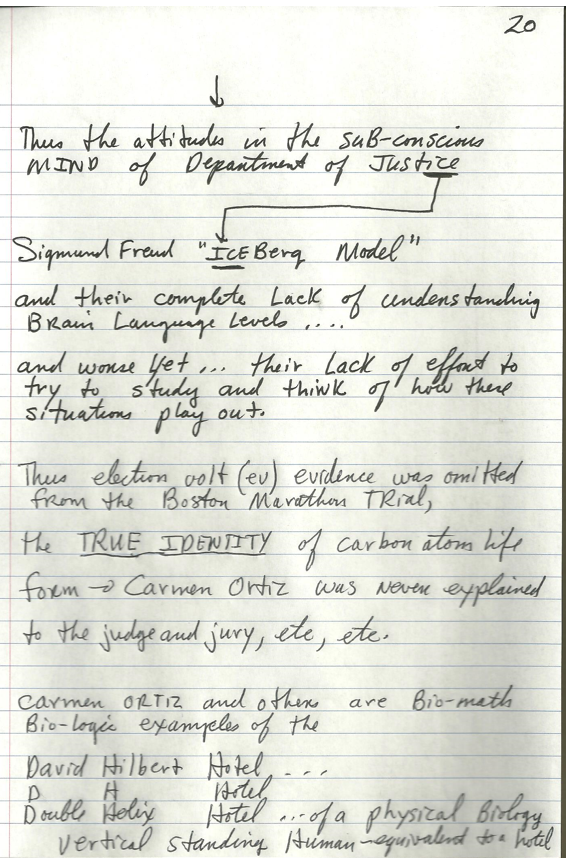 20
Thus the attitudes in the sub-conscious
MIND of Department of Justice
Sigmund Freud "ICEBerg Model"
and their complete Lack of understanding
Brain Language Levels ....
and worse yet ... their Lack of effort to
try to study and think of how these
situations play out.
Thus electron volt (ev) evidence was omitted
from the Boston Marathon TRial,
the TRUE IDENTITY of carbon atom life
form → Carmen Ortiz was never explained
to the judge and jury, etc, etc.
Carmen ORTIZ and others are Bio-math
Bio-logic examples of the
David Hilbert Hotel ...
D H Hotel
Double Helix Hotel ... of a physical Biology
vertical standing Human-equivalent to a hotel